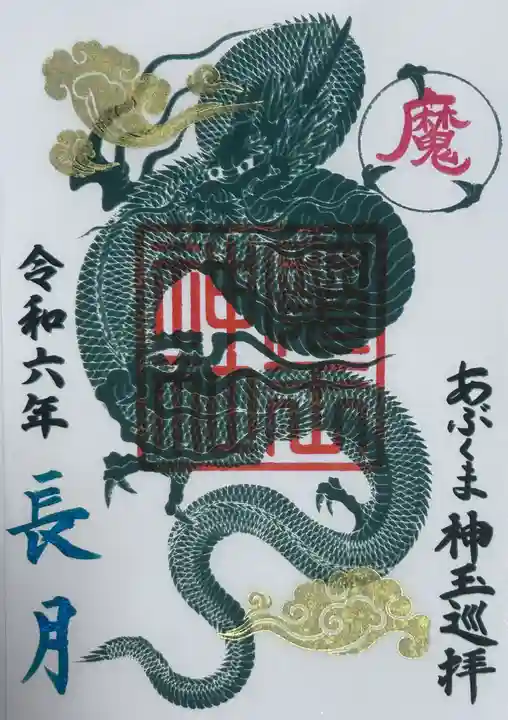 魔
あぶくま神玉巡拝
令和六年
長月